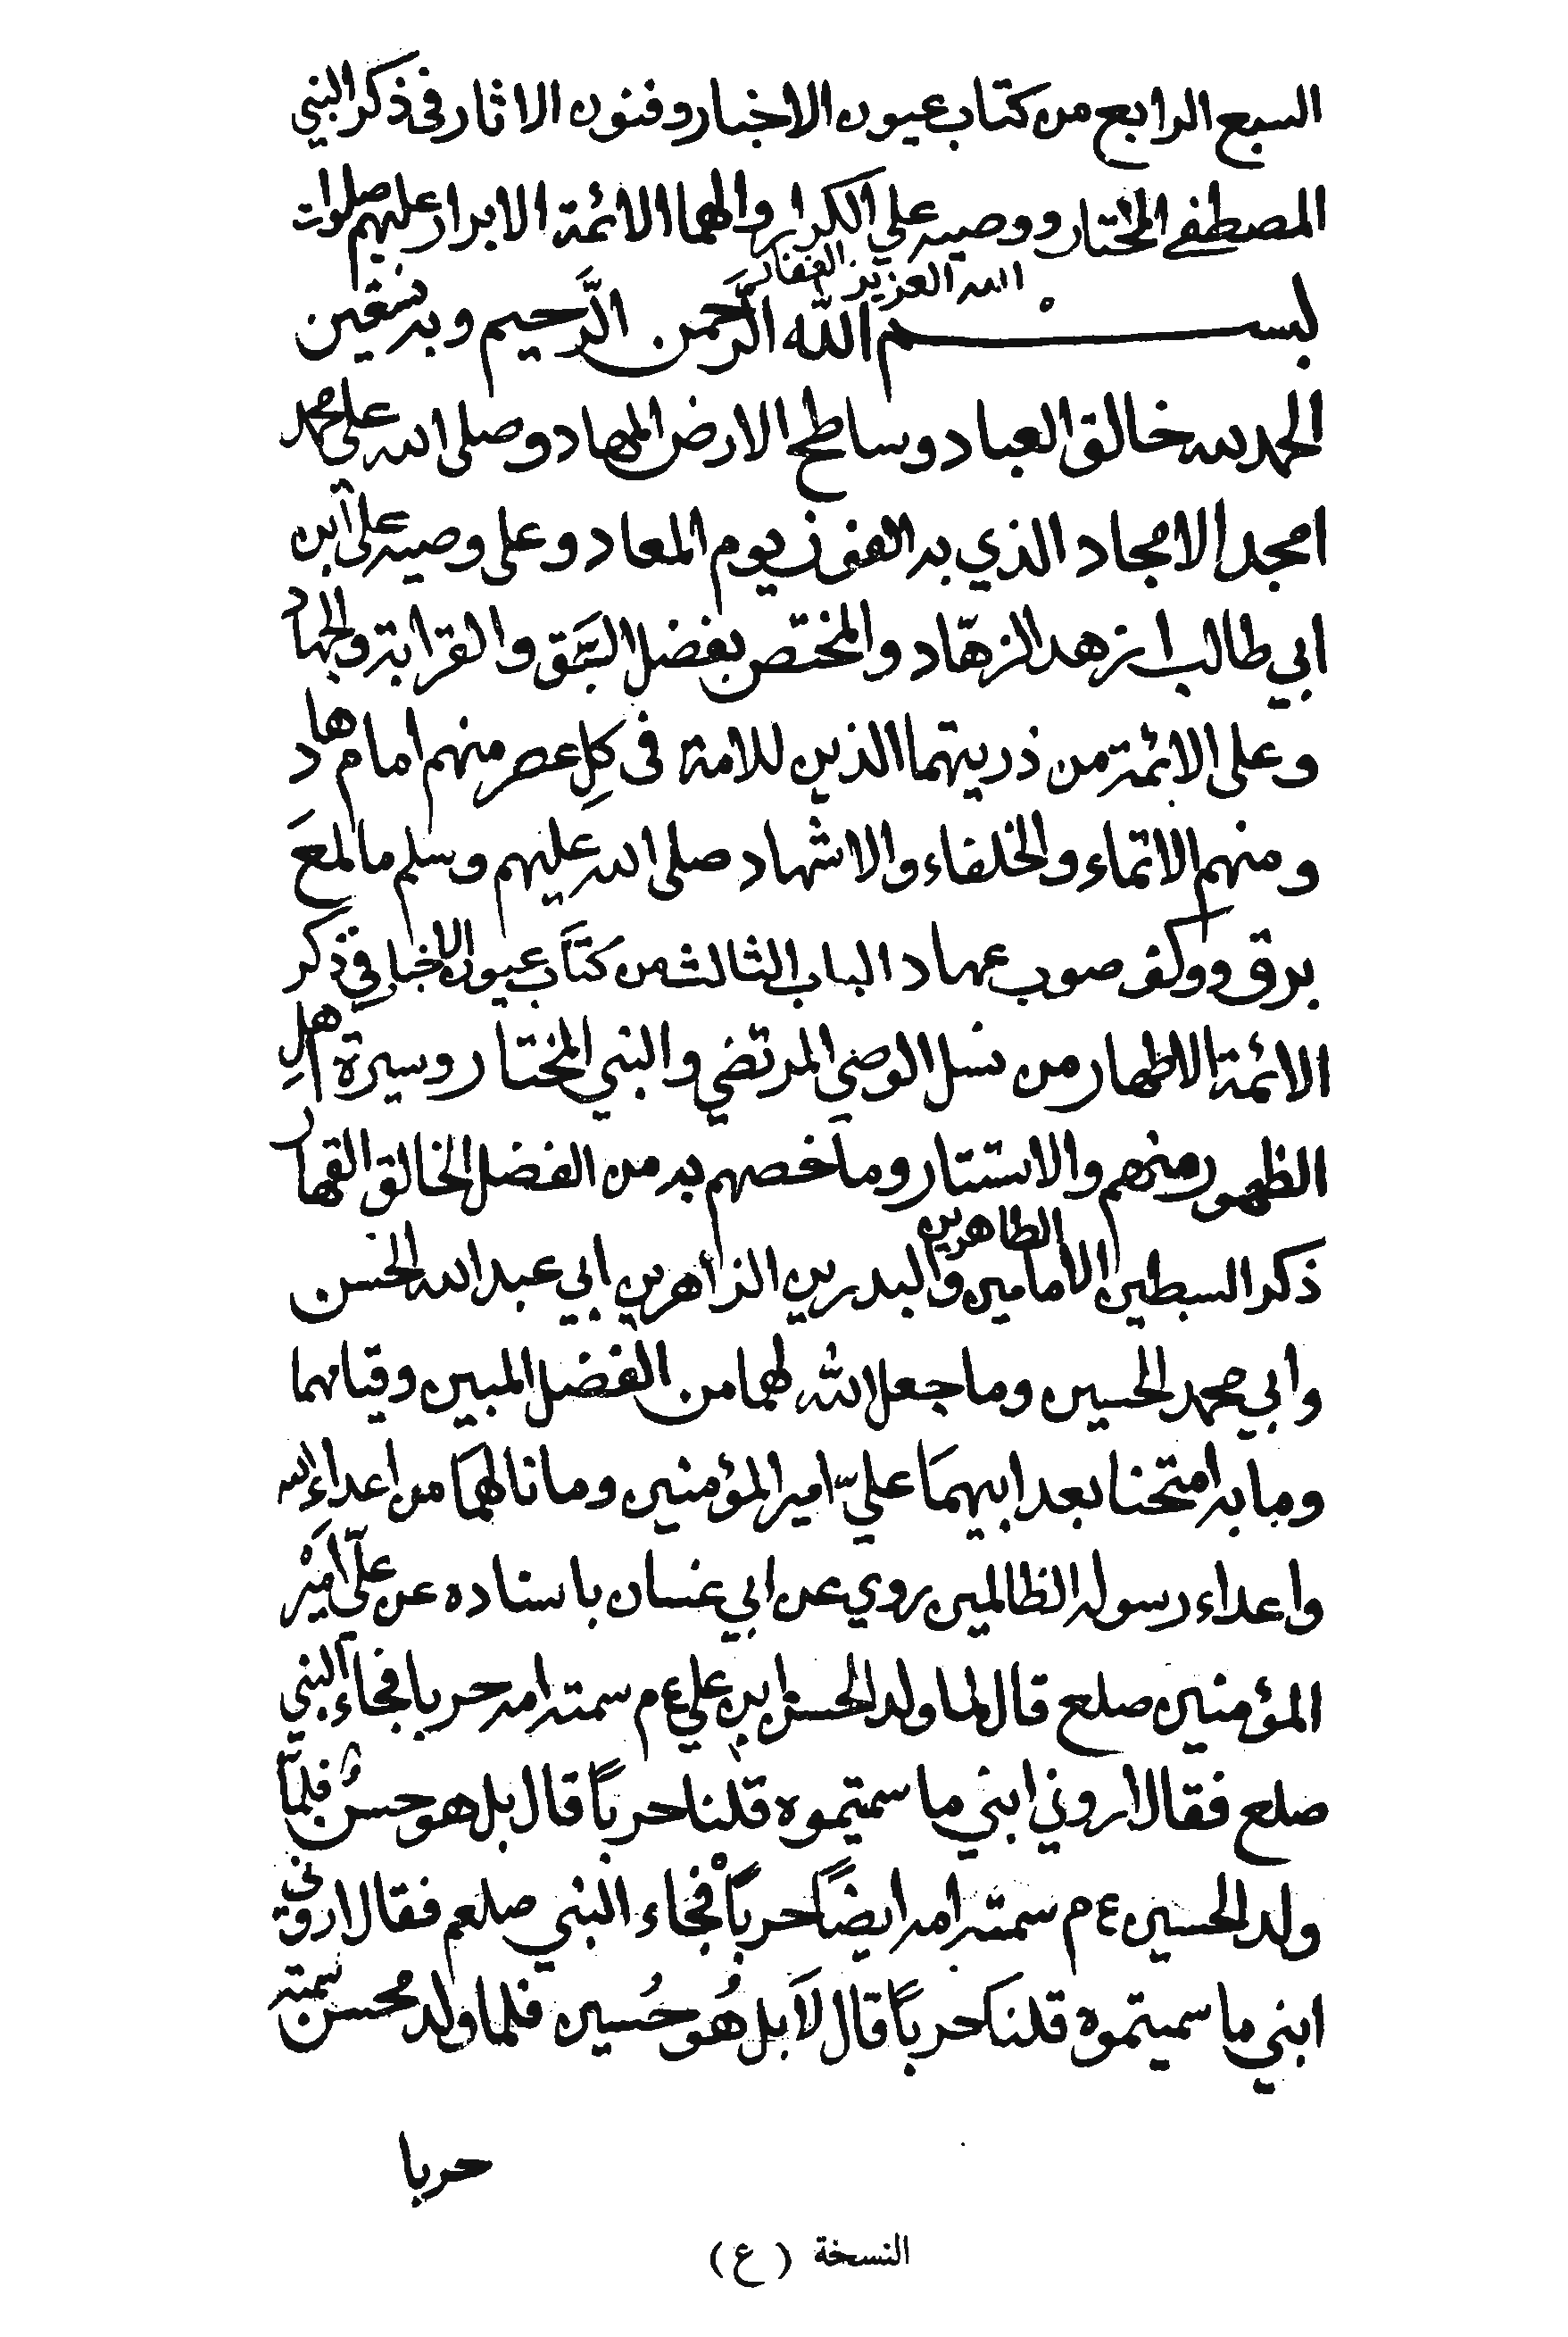 السبع الرابع من كتاب عيون الاخبار وفنون الاثار في ذكر النبي
المصطفى المختار ووصيه علي الكرار والهما الائمة الابرار عليهم صلوات
الله العزيز الغفار
بسم الله الرَّحمن الرَّحيم وبه نستعين
الحمد لله خالق العباد وساطح الارض المهاد وصلى الله على محمد
امجد الامجاد الذي به الفوز يوم المعاد وعلى وصيه علي ابن
ابي طالب ازهد الزهّاد والمختص بفضل السَّبق والقرابة والجهاد
وعلى الائمة من ذريتهما الذين للامة في كلِ عصر منهم امام هاد
ومنهم الاتماء والخلفاء والاشهاد صلى الله عليهم وسلم ما لمعَ
برق ووكف صوب عهاد الباب الثالث من كتاب عيون الاخبار في ذكر
الائمة الاطهار من نسل الوصي المرتضي والنبي المختار وسيرة اهلِ
الظهور منهم والاستتار وما خصهم به من الفضل الخالق القهار
ذكر السبطين الامامين الطاهرين والبدرين الزاهرين ابي عبد الله الحسن
وابي محمد الحسين وما جعل الله لهما من الفضل المبين وقيامهما
وما به امتحنا بعد ابيهمَا عليّ امير المؤمنين وما نالهمَا من اعداء الله
واعداء رسوله الظالمين روي عن ابي غسان باسناده عن عليّ اميْر
المؤمنين صلع قال لما ولد الحسن ابن علي ع م سمته امه حربا فجاء النبي
صلع فقال اروني ابني ما سميتموه قلنا حرباً قال بل هو حسنٌ فلمّا
ولد الحسين ع م سمته امه ايضاً حرباً فجاء النبي صلعم فقال اروني
ابني ما سميتموه قلنا حرباً قال لَا بل هُو حُسين فلما ولد محسن سمته
حربا
النسخة ( ع )